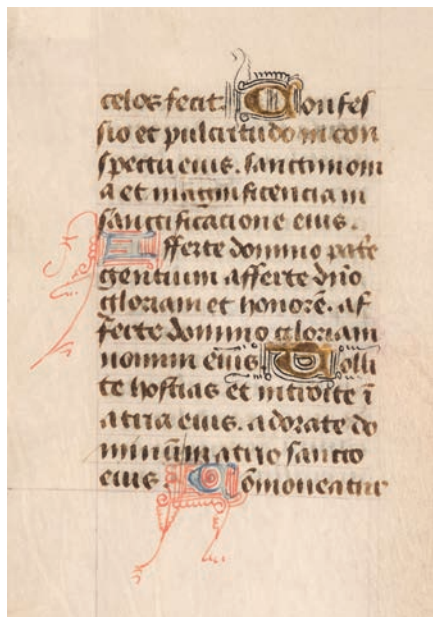 celos fecit. Confes
sio et pulcritudo in con
spectu eius. sanctimoni
a et magnificencia in
sanctificacione eius.
Afferte domino patrie
gentium afferte dn̄o
gloriam et honorē. af
ferte domino gloriam
nomini eius. Tolli
te hostias et introite ī
atria eius. adorate do
minum in atrio sancto
eius. Cōmoveatur